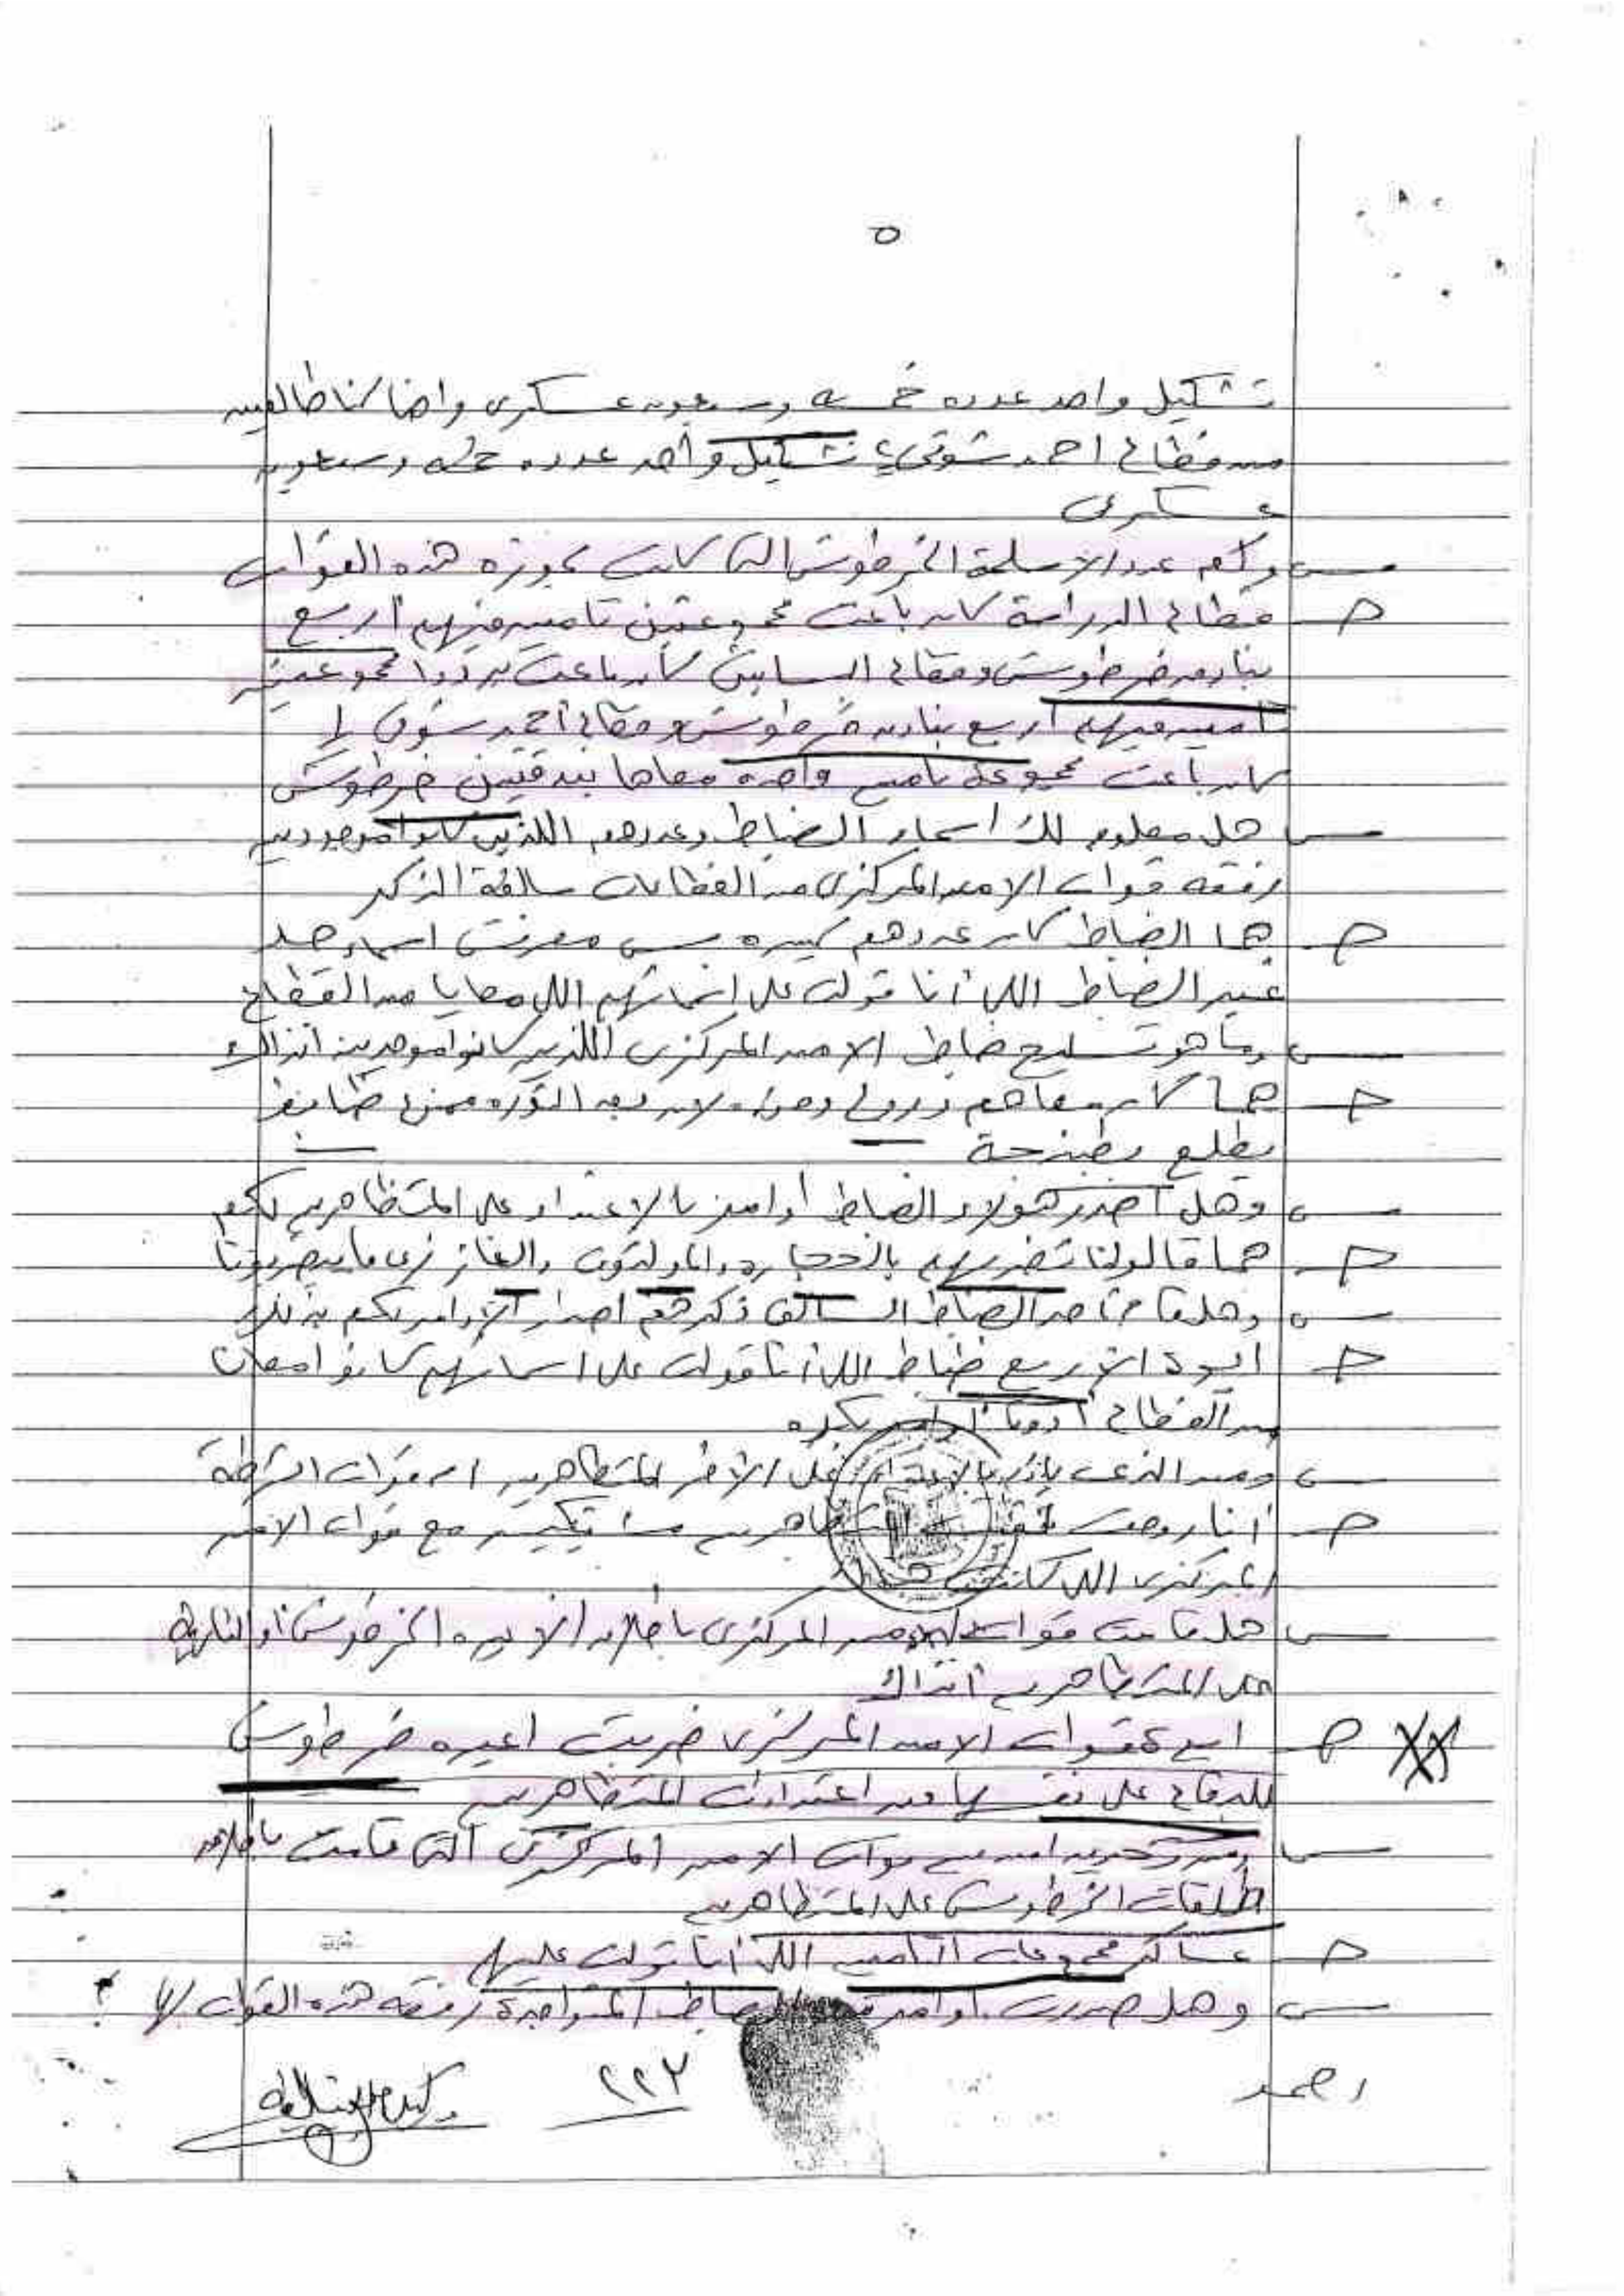 ٥
تشكيل واحد عدده خمسه وسبعون عسكرى واحنا كنا طالعين
من قطاع احمد شوقى تشكيل واحد عدده خمسه وسبعون
عسكرى
س وكم عدد الاسلحة الخرطوش التى كانت بحوزه هذه القوات
ج قطاع الدراسة كان باعت مجموعتين تامين فيهم أربع
بنادق خرطوش وقطاع كان باعت مجموعتين
تامين فيهم أربع بنادق خرطوش وقطاع أحمد شوقى
كان باعت مجموعة تامين واحده معاها بندقيتين خرطوش
س هل معلوم لك اسماء الضباط وعددهم اللذين كانوا موجودين
رفقه قوات الامن المركزى من القطاعات سالفة الذكر
ج هما الضباط كان عددهم كبير بس معرفش اسماء حد
غير الضباط اللى أنا قولت على اسمائهم اللى معايا من القطاع
س وما هو تسليح ضباط الامن المركزى اللذين كانوا موجودين انذاك
ج هما كان معاهم دروع لان بعد الثوره ممنوع ضابط
يطلع بطبنجة
س وهل أصدر هؤلاء الضباط أوامر بالاعتداء على المتظاهرين لكم
ج هما قالولنا نضربهم بالحجاره والمولوتوف والغاز زى ما بيضربونا
س وهل قام من الضباط السالف ذكرهم اصدار الأوامر لكم بذلك
ج ايوة الأربع ضباط اللى أنا قولت على اسمائهم كانوا معانا
من القطاع أدونا أوامر بكده
س ومن الذى بالاعتداء على الأخر المتظاهرين ام قوات الشرطة
ج أنا روحت المتظاهرين مع قوات الامن
المركزى اللى كانت
س هل قامت قوات الامن المركزى باطلاق الاعيره الخرطوش أو الناريه
على المتظاهرين آنذاك
ج ايوه قوات الامن المركزى ضربت اعيره خرطوش
للدفاع على نفسها من اعتداءات المتظاهرين
س ومن تحديدا من قوات الامن المركزى التى قامت باطلاق
طلقات الخرطوش على المتظاهرين
ج عساكر مجموعات التامين اللى أنا قولت عليهم
س وهل صدرت اوامر الضباط المتواجدة رفقه هذه القوات ؟
احمد
٢٢٣
وكيل النيابة